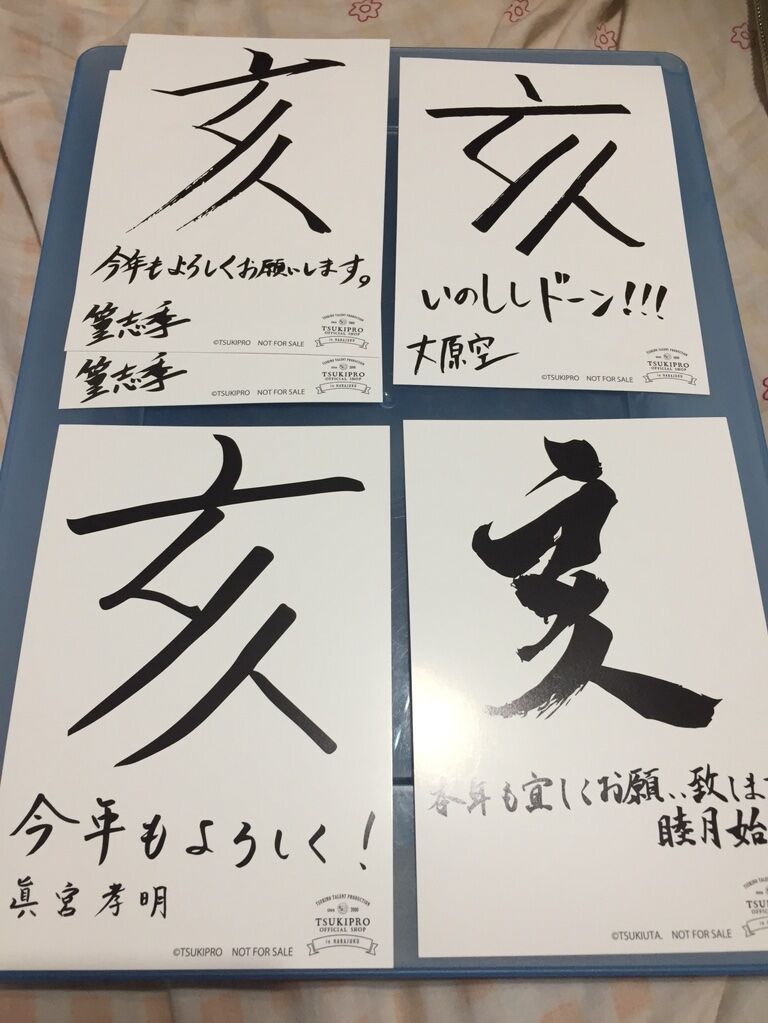 亥
今年もよろしくお願いします。
篁志季
©TSUKIPRO NOT FOR SALE
TSUKINO TALENT PRODUCTION
since 2000
TSUKIPRO
OFFICIAL SHOP
in HARAJUKU
篁志季
©TSUKIPRO NOT FOR SALE
TSUKIPRO
OFFICIAL SHOP
in HARAJUKU
亥
いのししドーン!!!
大原空
©TSUKIPRO NOT FOR SALE
TSUKINO TALENT PRODUCTION
since 2000
TSUKIPRO
OFFICIAL SHOP
in HARAJUKU
亥
今年もよろしく!
眞宮孝明
©TSUKIPRO NOT FOR SALE
TSUKINO TALENT PRODUCTION
since 2000
TSUKIPRO
OFFICIAL SHOP
in HARAJUKU
亥
本年も宜しくお願い致しま
睦月始
©TSUKIUTA. NOT FOR SALE